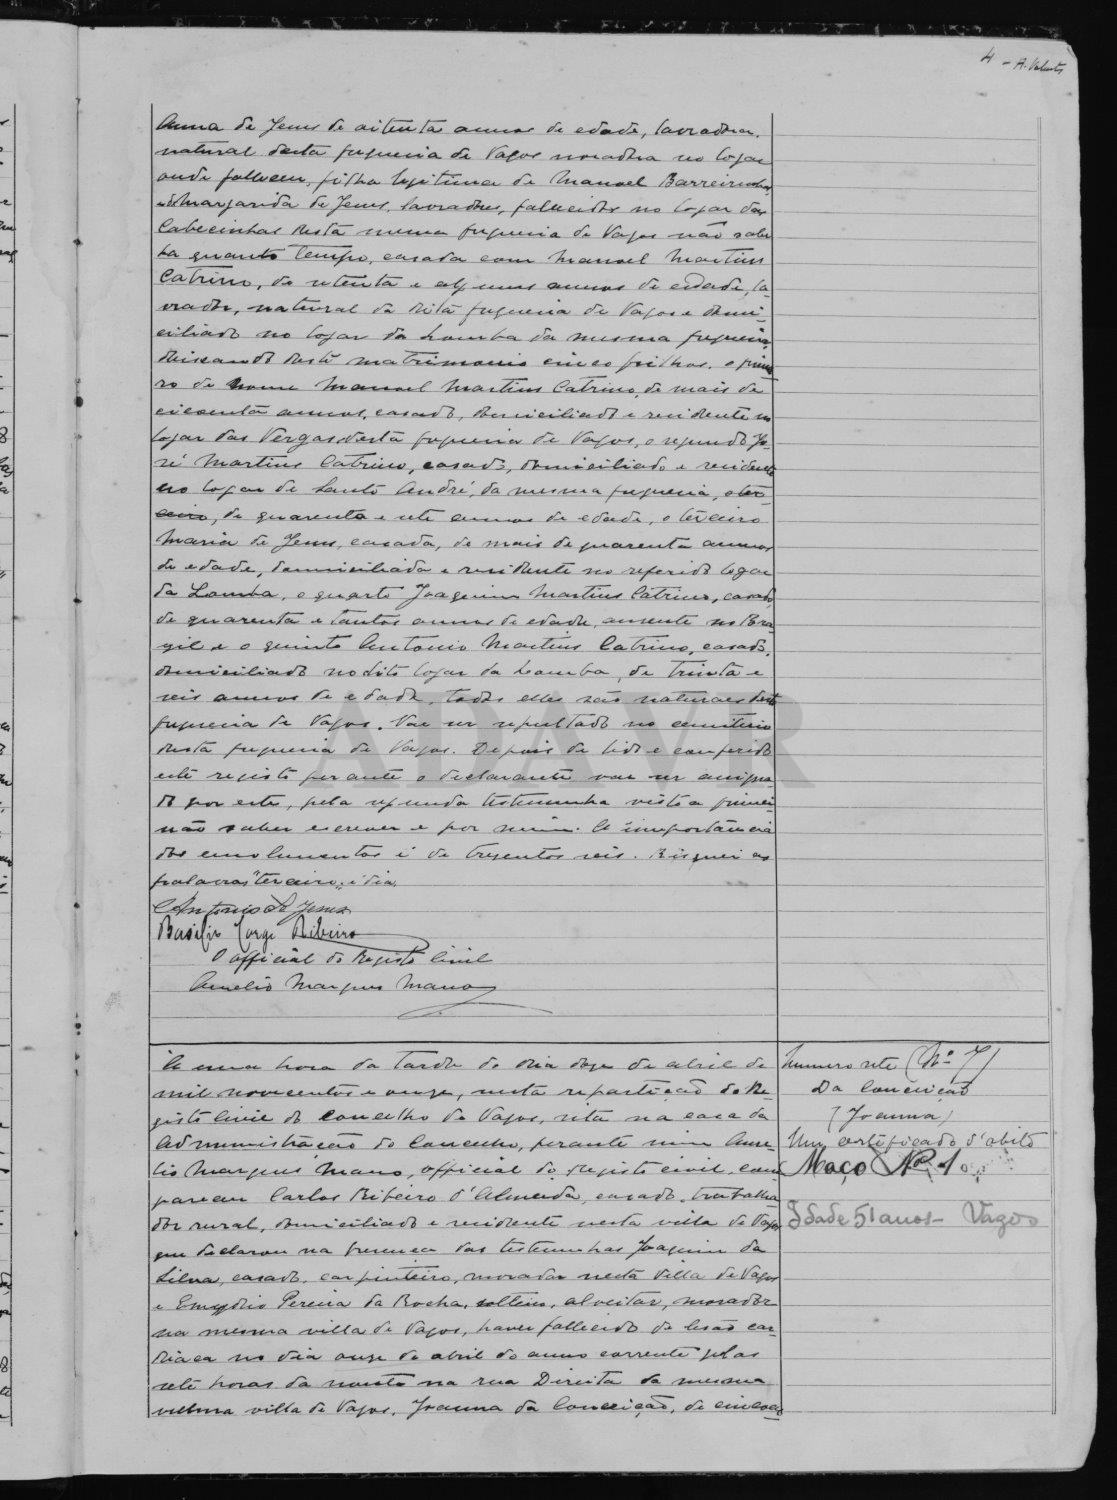 4 - A. Valente
Anna de Jesus de oitenta annos de edade, lavradora,
natural desta freguesia de Vagos moradora no logar
onde falleceu, filha legitima de Manoel Barreirinha,
e de Margarida de Jesus, lavradores, fallecidos no logar das
Cabecinhas desta mesma freguesia de Vagos não sabe
ha quanto tempo, casada com Manoel Martins
Catrino, de setenta e alguns annos de edade, la-
vrador, natural da dita freguesia de Vagos e domi-
ciliado no logar da Lomba da mesma freguesia,
deixando deste matrimonio cinco filhos, o primei-
ro de nome Manoel Martins Catrino, de mais de
cicoenta annos, casado, domiciliado e residente no
logar das Vergas, desta freguesia de Vagos, o segundo Jo-
sé Martins Catrino, casado, domiciliado e residente
no logar de Santo André, da mesma freguesia, o ter-
ceiro, de quarenta e sete annos de edade, o terceiro
Maria de Jesus, casada, de mais de quarenta annos
de edade, domiciliada e residente no referido logar
da Lomba, o quarto Joaquim Martins Catrino, casado,
de quarenta e tantos annos de edade, ausente no Bra-
zil e o quinto Antonio Martins Catrino, casado,
domiciliado no dito logar da Lomba, de trinta e
seis annos de edade, todos elles são naturaes desta
freguesia de Vagos. Vae ser sepultado no cemiterio
desta freguesia de Vagos. Depois de lido e conferido
este registo perante o declarante vae ser assigna-
do por este, pela segunda testemunha visto a primei-
não saber escrever e por mim. A importancia
dos emolumentos é de tresentos reis. Risquei as
palavras "terceiro, e dia,
Antonio de Jesus
Basilio Jorge Ribeiro
O official do Registo Civil
Aurelio Marques Mano
ADAVR
A uma hora da tarde do dia doze de abril de
mil novecentos e onze, nesta repartição do Re-
gisto Civil do concelho de Vagos, sita na casa da
Administração do Concelho, perante mim Aure-
lio Marques Mano, official do Registo civil, com-
pareceu Carlos Ribeiro d'Almeida, casado, trabalha-
dor rural, domiciliado e residente nesta villa de Vagos
que declarou na presença das testemunhas Joaquim da
Silva, casado, carpinteiro, morador nesta Villa de Vagos
e Emygdio Pereira da Rocha, solteiro, alveitar, morador
na mesma villa de Vagos, haver fallecido de lesão car-
diaca no dia onze de abril do anno corrente pelas
sete horas da noute na rua Direita da mesma
mesma villa de Vagos, Joanna da Conceição, de cincoen-
Numero sete (Nº 7)
Da Conceição
(Joanna)
Um certificado d'obito
Maço Nº 1
Idade 51 anos - Vagos